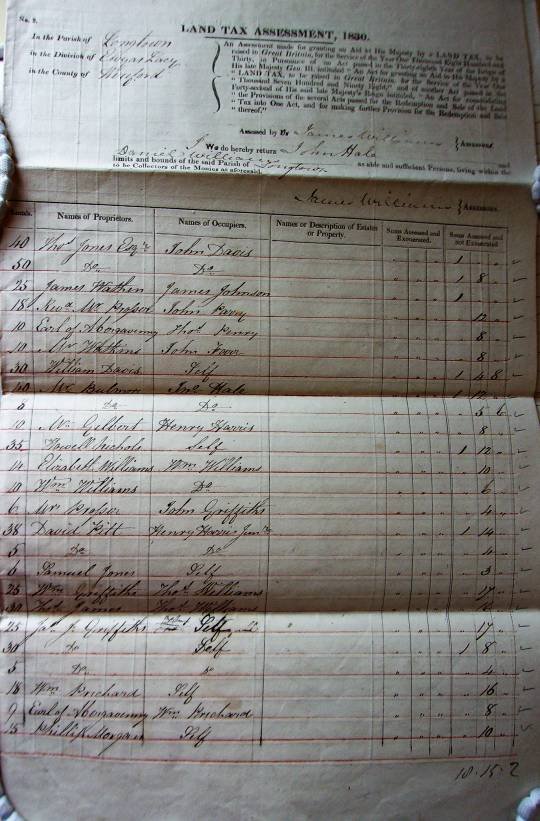 No. 2.
LAND TAX ASSESSMENT, 1830.
In the Parish of Longtown
in the Division of Ewyas Lacy
in the County of Hereford
An Assessment made for granting an Aid to His Majesty by a LAND TAX, to be
raised in Great Britain, for the Service of the Year One Thousand Eight Hundred and
Thirty, in Pursuance of an Act passed in the Thirty-eighth Year of the Reign of
His late Majesty Geo. III. intituled "An Act for granting an Aid to His Majesty by a
"LAND TAX, to be raised in Great Britain, for the Service of the Year One
"Thousand Seven Hundred and Ninety Eight;" and of another Act passed in the
Forty-second of His said late Majesty's Reign intituled, "An Act for consolidating
"the Provisions of the several Acts passed for the Redemption and Sale of the Land
"Tax into One Act, and for making further Provision for the Redemption and Sale
"thereof."
Assessed by Us James Williams } Assessors.
We do hereby return John Hale
Daniel Williams and
limits and bounds of the said Parish of Longtown as able and sufficient Persons, living within the
to be Collectors of the Monies as aforesaid.
James Williams } Assessors.
Names of Proprietors. Names of Occupiers. Names or Description of Estates or Property. Sums Assessed and Exonerated. Sums Assessed and not Exonerated
40 Thos. Jones Esqre John Davis 1 " "
50 Do. Do. 1 8 "
25 James Wathen James Johnson 1 " "
18 Mr Prosser John Perry 12 "
10 Earl of Abergavenny Thos. Penry 8 "
10 Mr Watkins John 8 "
30 William Davis Self 1 4 8
Mr Jno. Hale 1 12 "
8 Do Do 5 6
10 Mr Gilbert Henry Harris 8 "
35 Howell Nichols Self 1 12 "
14 Elizabeth Williams Wm. Williams 10 "
10 Wm. Williams Do 6 "
6 Mr Prosser John Griffiths 4 "
38 David Pitt Henry Harris Junr. 1 14 "
5 Do Do 4 "
6 Samuel Jones Self 3 "
25 Wm Griffiths Thos. Williams 17 "
30 Thos. James Thos. Williams
25 Griffiths Self 17 "
30 Do Self 1 8 "
5 Do Do 4 "
18 Wm. Prichard Self 16 "
9 Earl of Abergavenny Wm. Prichard 8 "
15 Phillip Morgan Self 10 "
18.15.2